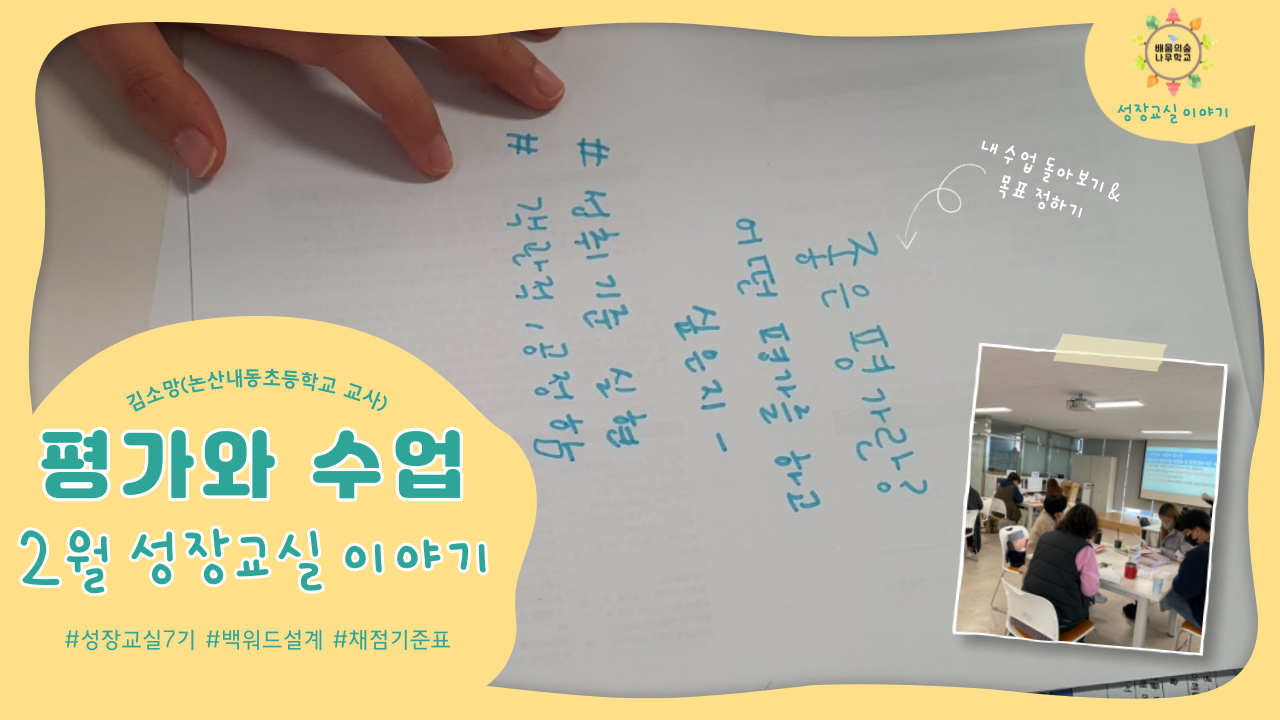 배움의숲
나무학교
성장교실 이야기
내 수업 돌아보기&
목표 정하기
좋은 평가란?
어떤 평가를 하고
싶은지 -
# 성취기준 실현
# 객관적, 공정함
김소망(논산내동초등학교 교사)
평가와 수업
2월 성장교실 이야기
#성장교실7기 #백워드설계 #채점기준표